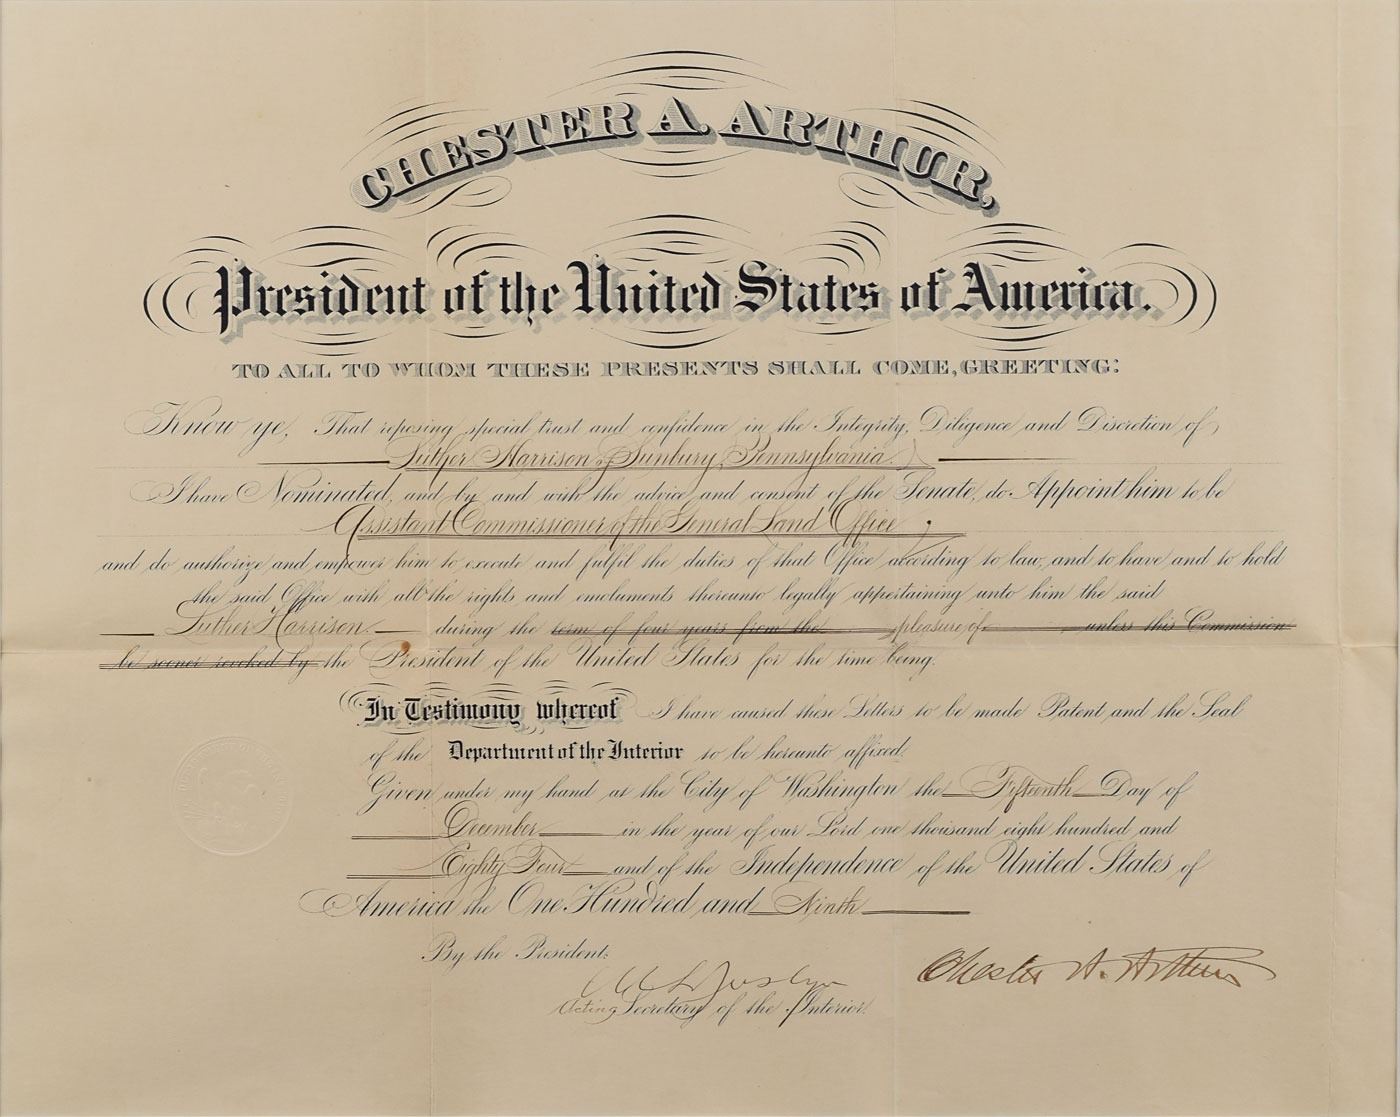 CHESTER A. ARTHUR,
President of the United States of America.
TO ALL TO WHOM THESE PRESENTS SHALL COME, GREETING:
Know ye, That reposing special trust and confidence in the Integrity, Diligence and Discretion of
Luther Harrison, of Sunbury, Pennsylvania.
I have Nominated, and by and with the advice and consent of the Senate, do Appoint him to be
Assistant Commissioner of the General Land Office;
and do authorize and empower him to execute and fulfil the duties of that Office according to law, and to have and to hold
the said Office with all the rights and emoluments thereunto legally appertaining unto him the said
Luther Harrison. during the term of four years from the pleasure of unless this Commission
be sooner revoked by the President of the United States for the time being.
In Testimony whereof I have caused these Letters to be made Patent and the Seal
of the Department of the Interior to be hereunto affixed.
Given under my hand at the City of Washington the Fifteenth Day of
December in the year of our Lord one thousand eight hundred and
Eighty Four and of the Independence of the United States of
America the One Hundred and Ninth
By the President:
Joslyn
Chester A. Arthur
Acting Secretary of the Interior.